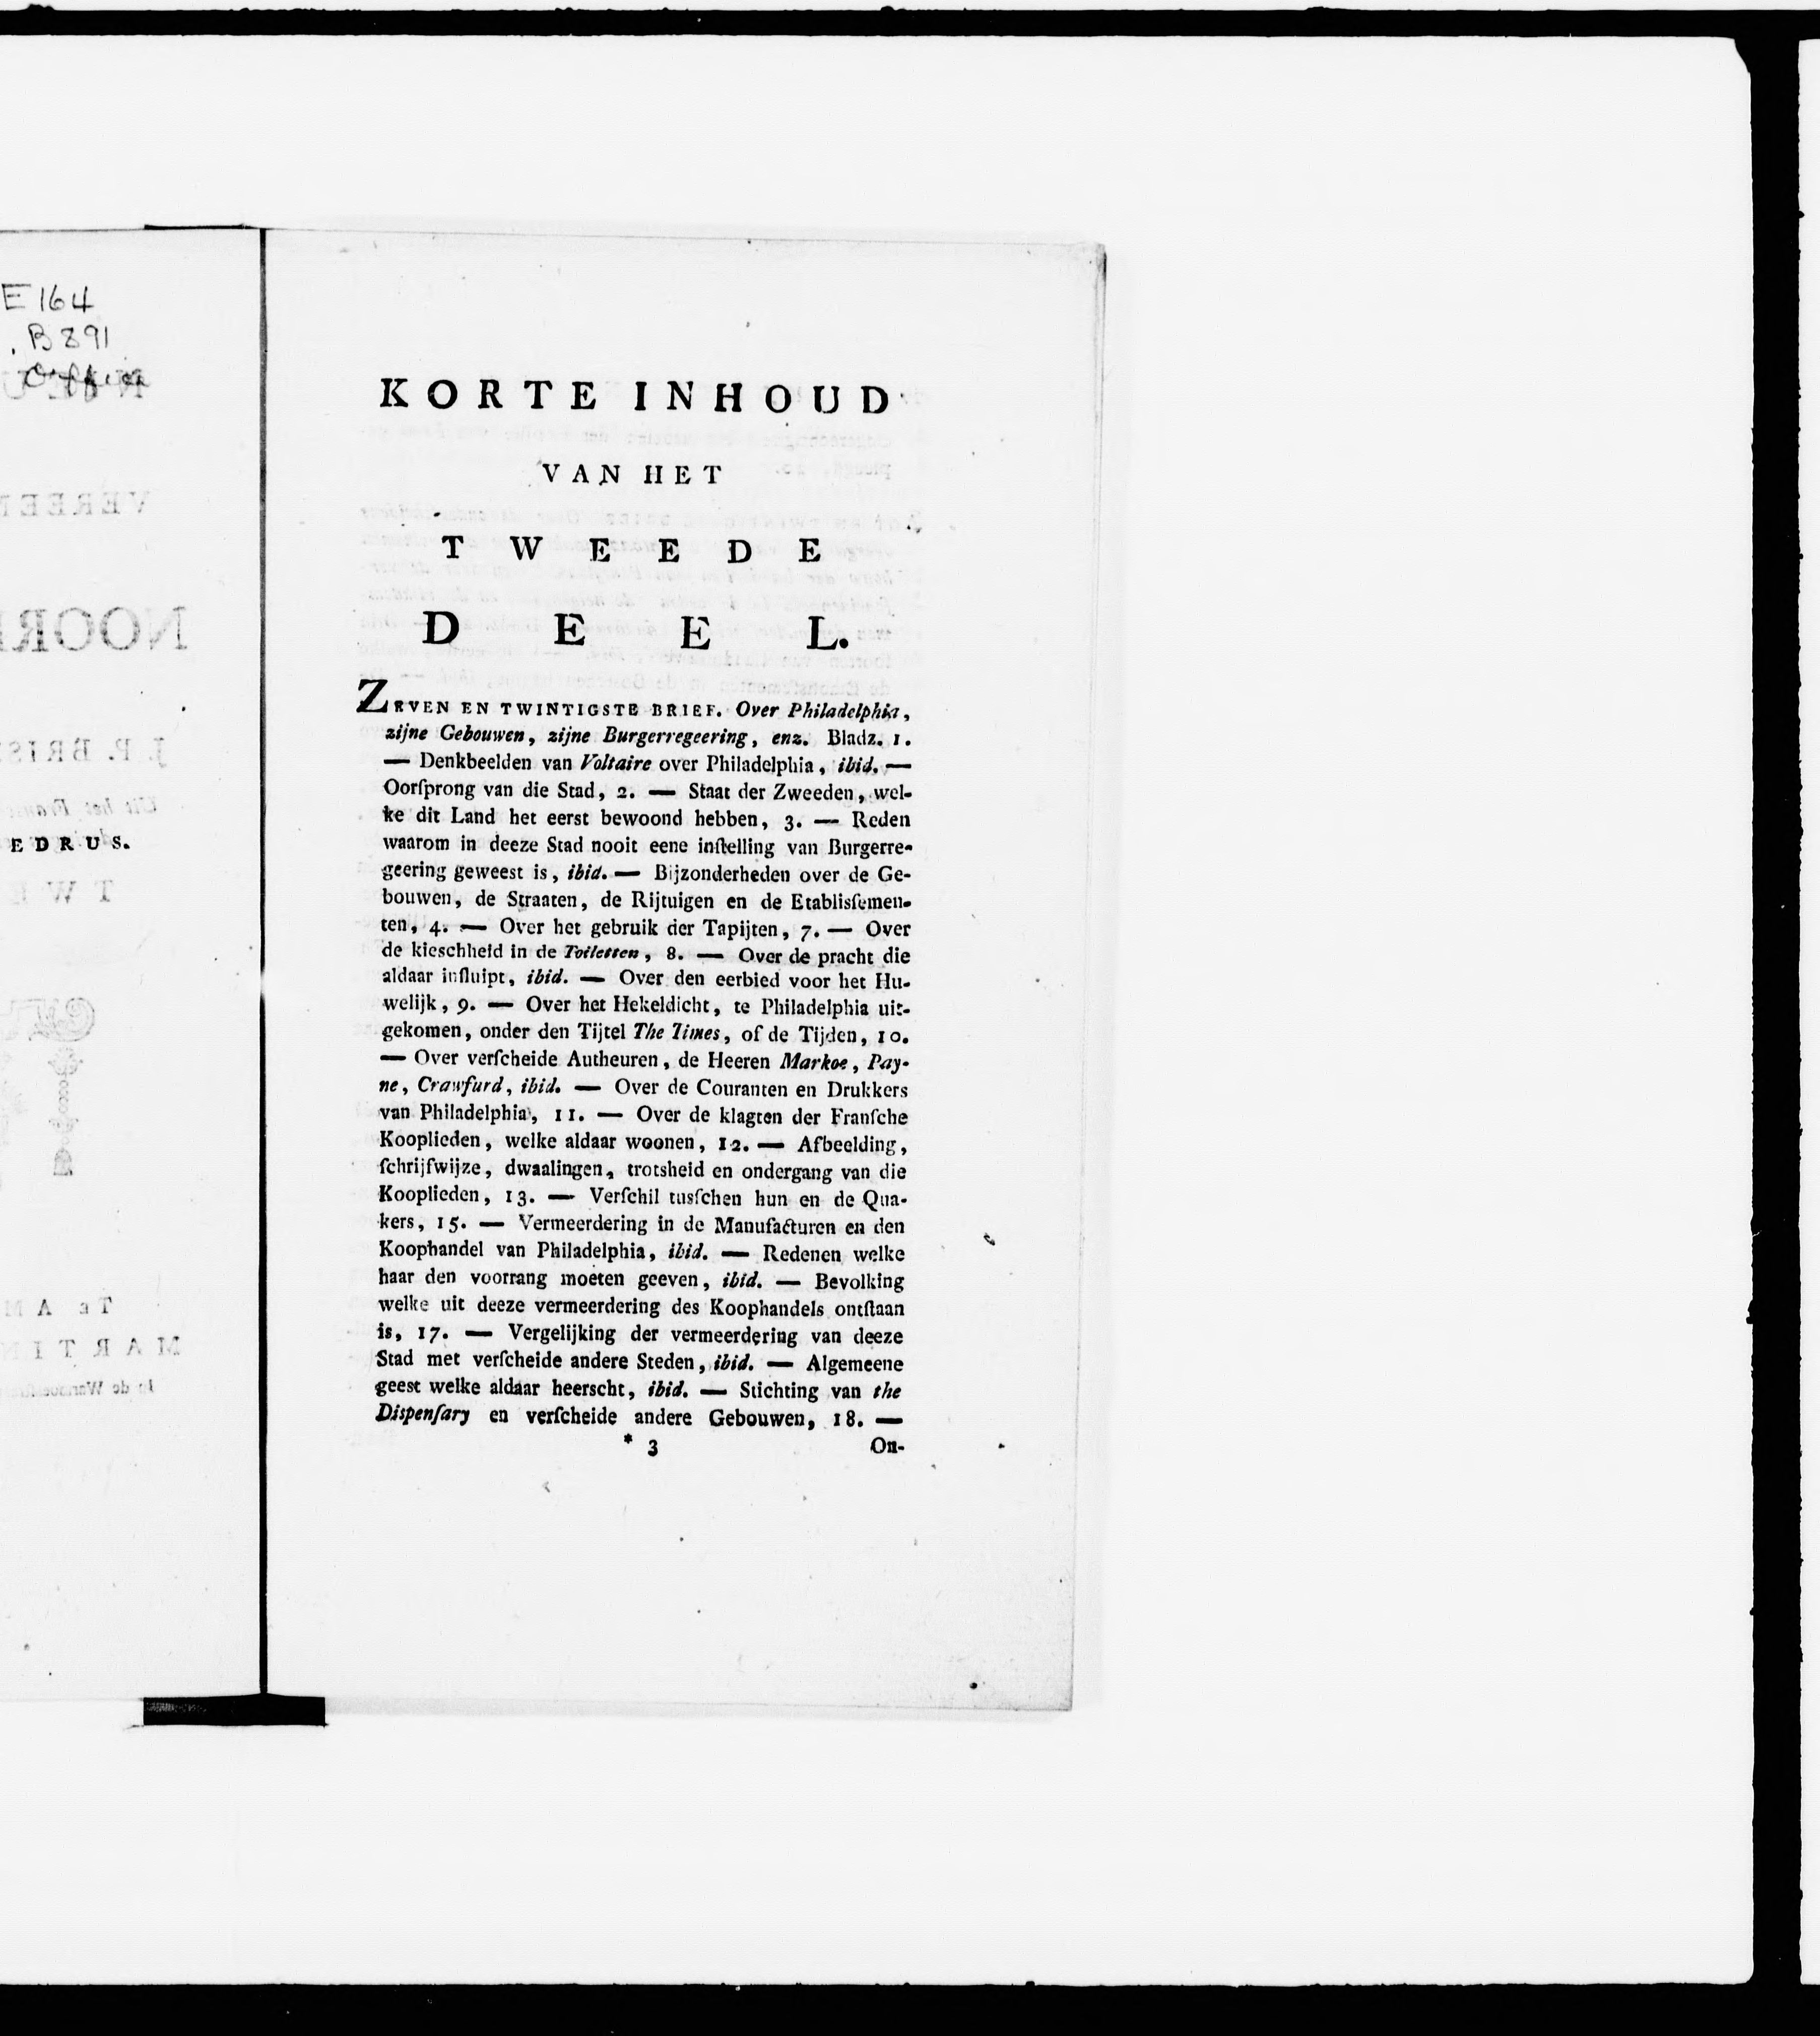 E164
.B891
EDRUS.
KORTE INHOUD
VAN HET
TWEEDE
DEEL.
ZEVEN EN TWINTIGSTE BRIEF. Over Philadelphia,
zijne Gebouwen, zijne Burgerregeering, enz. Bladz. 1.
— Denkbeelden van Voltaire over Philadelphia, ibid. —
Oorſprong van die Stad, 2. — Staat der Zweeden, wel-
ke dit Land het eerst bewoond hebben, 3. — Reden
waarom in deeze Stad nooit eene inſtelling van Burgerre-
geering geweest is, ibid. — Bijzonderheden over de Ge-
bouwen, de Straaten, de Rijtuigen en de Etablisſemen-
ten, 4. — Over het gebruik der Tapijten, 7. — Over
de kieschheid in de Toiletten, 8. — Over de pracht die
aldaar inſluipt, ibid. — Over den eerbied voor het Hu-
welijk, 9. — Over het Hekeldicht, te Philadelphia uit-
gekomen, onder den Tijtel The Times, of de Tijden, 10.
— Over verſcheide Autheuren, de Heeren Markoe, Pay-
ne, Crawfurd, ibid. — Over de Couranten en Drukkers
van Philadelphia, 11. — Over de klagten der Franſche
Kooplieden, welke aldaar woonen, 12. — Afbeelding,
ſchrijfwijze, dwaalingen, trotsheid en ondergang van die
Kooplieden, 13. — Verſchil tusſchen hun en de Qua-
kers, 15. — Vermeerdering in de Manufacturen en den
Koophandel van Philadelphia, ibid. — Redenen welke
haar den voorrang moeten geeven, ibid. — Bevolking
welke uit deeze vermeerdering des Koophandels ontſtaan
is, 17. — Vergelijking der vermeerdering van deeze
Stad met verſcheide andere Steden, ibid. — Algemeene
geest welke aldaar heerscht, ibid. — Stichting van the
Dispenſary en verſcheide andere Gebouwen, 18. —
* 3 On-